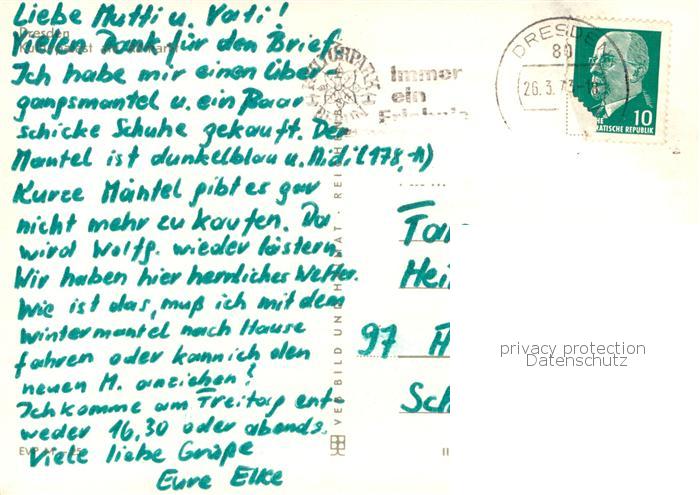 Liebe Mutti u. Vati!
Dresden
Vielen Dank für den Brief.
Ich habe mir einen Über-
gangsmantel u. ein Paar
schicke Schuhe gekauft. Der
Mantel ist dunkelblau u. Midi (178,-M)
Kurze Mäntel gibt es gar
nicht mehr zu kaufen. Da
wird Wolfg. wieder lästern.
Wir haben hier herrliches Wetter.
Wie ist das, muß ich mit dem
Wintermantel nach Hause
fahren oder kann ich den
neuen M. anziehen?
Ich komme am Freitag ent-
weder 16,30 oder abends.
Viele liebe Grüße
Eure Elke
VEB BILD UND HEIMAT · REICHENBACH
Immer
ein
Erlebnis
DRESDEN 1
80
26.3.73
10
DEUTSCHE DEMOKRATISCHE REPUBLIK
Fa
Hei
97 H
Sch
privacy protection
Datenschutz